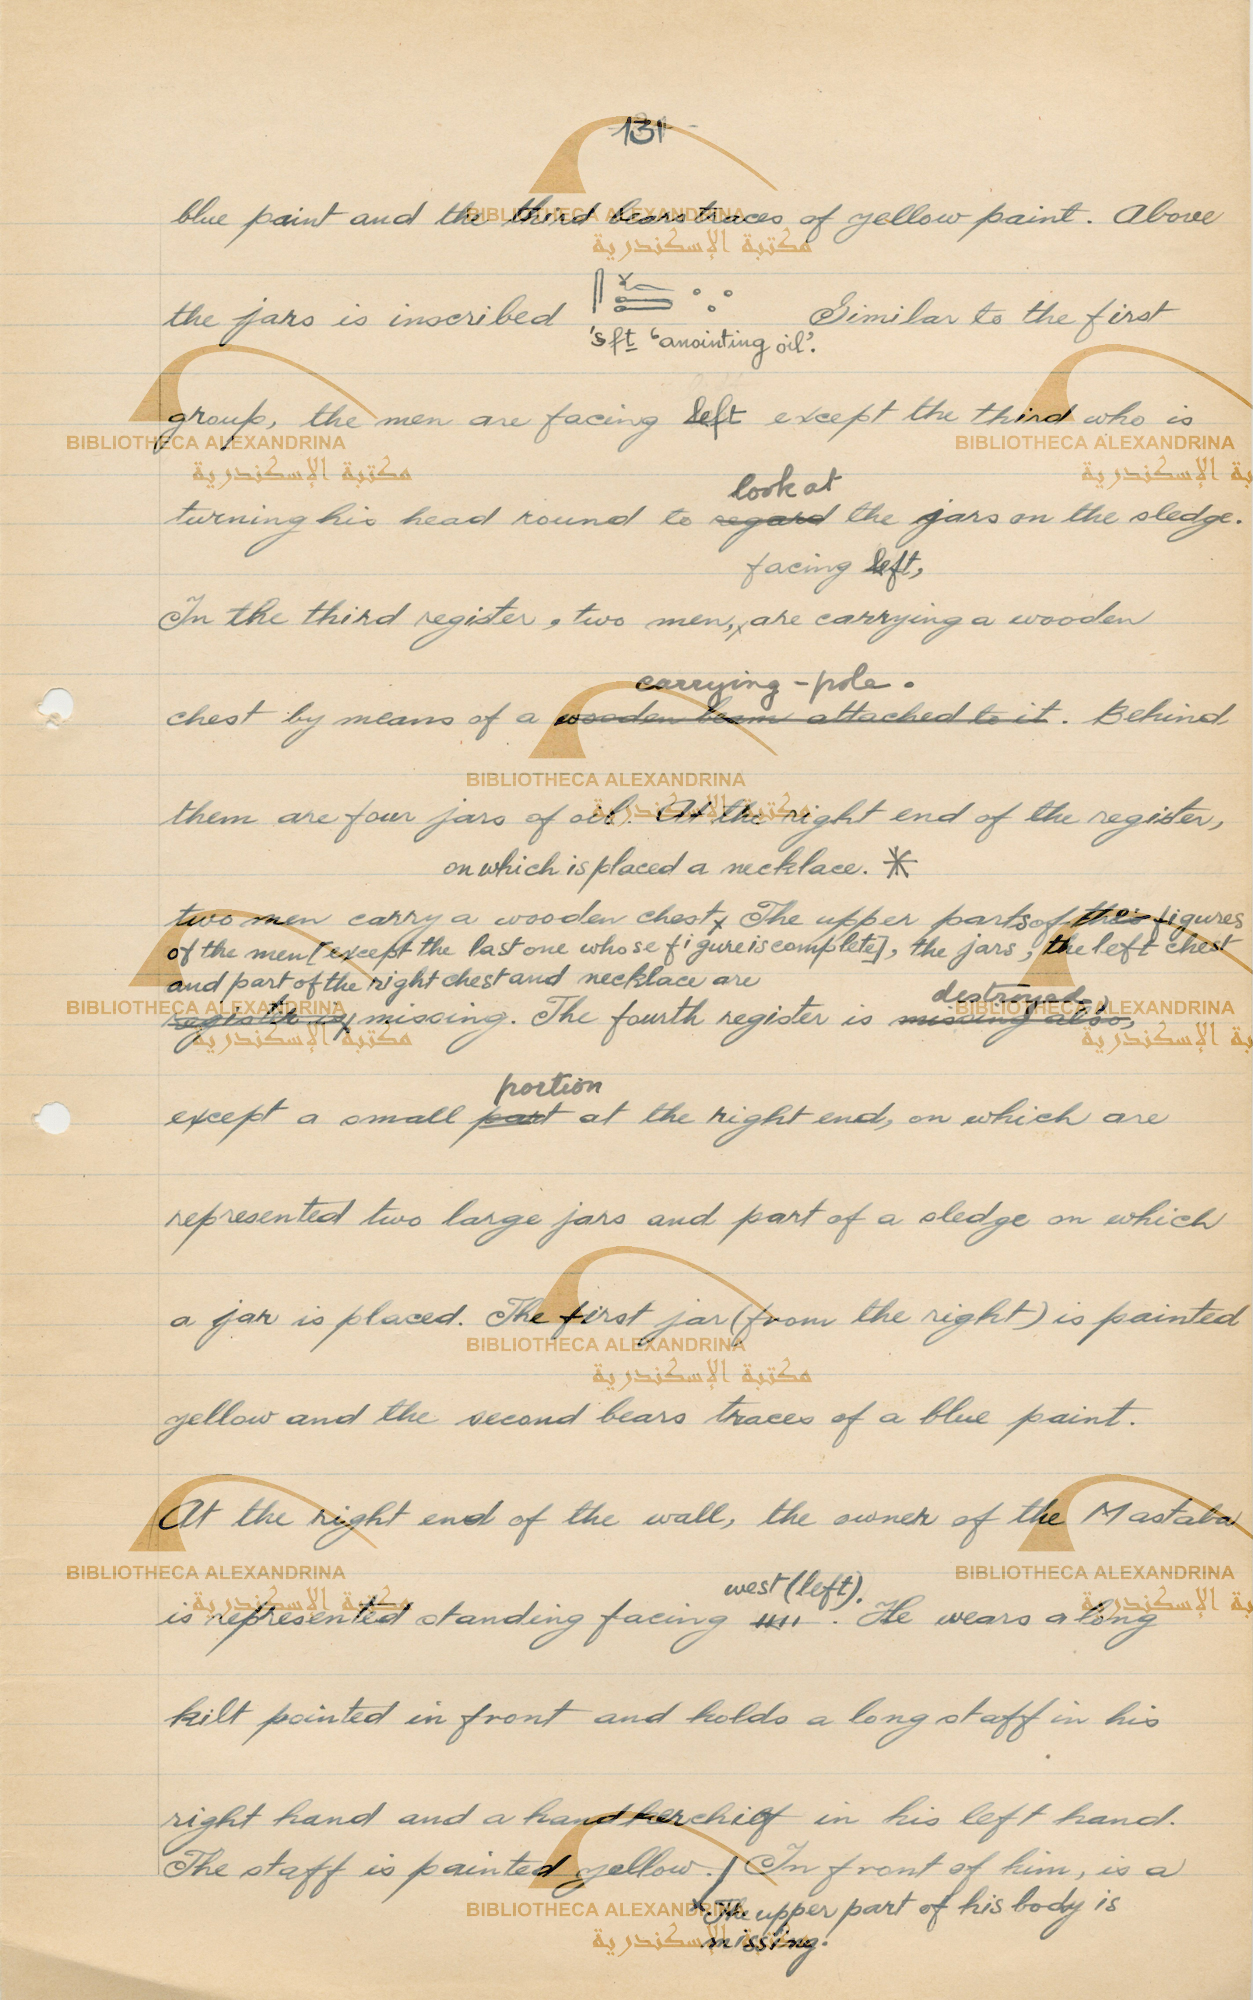 131
blue paint and the third bears traces of yellow paint. Above
the jars is inscribed Similar to the first
'sft 'anointing oil'.
group, the men are facing left except the third who is
look at
turning his head round to regard the jars on the sledge.
facing left,
In the third register, two men, x are carrying a wooden
carrying-pole.
chest by means of a wooden beam attached to it. Behind
them are four jars of oil. At the right end of the register,
on which is placed a necklace. *
two men carry a wooden chest x The upper parts of the figures
of the men [except the last one whose figure is complete], the jars, the left chest
and part of the right chest and necklace are
destroyed,
register is x missing. The fourth register is missing also,
portion
except a small part at the right end, on which are
represented two large jars and part of a sledge on which
a jar is placed. The first jar (from the right) is painted
yellow and the second bears traces of a blue paint.
At the right end of the wall, the owner of the Mastaba
west (left).
is represented standing facing . He wears a long
kilt pointed in front and holds a long staff in his
right hand and a handkerchief in his left hand.
The staff is painted yellow. / In front of him, is a
x The upper part of his body is
missing.
BIBLIOTHECA ALEXANDRINA
مكتبة الإسكندرية
BIBLIOTHECA ALEXANDRINA
مكتبة الإسكندرية
BIBLIOTHECA ALEXANDRINA
BIBLIOTHECA ALEXANDRINA
مكتبة الإسكندرية
BIBLIOTHECA ALEXANDRINA
مكتبة الإسكندرية
BIBLIOTHECA ALEXANDRINA
BIBLIOTHECA ALEXANDRINA
مكتبة الإسكندرية
BIBLIOTHECA ALEXANDRINA
مكتبة الإسكندرية
BIBLIOTHECA ALEXANDRINA
BIBLIOTHECA ALEXANDRINA
مكتبة الإسكندرية